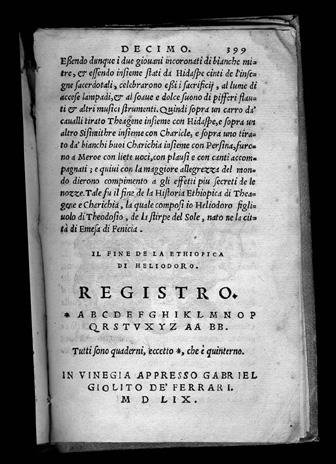 DECIMO. 399
Eßendo dunque i due giouani incoronati di bianche mi-
tre, & essendo insieme stati da Hidaspe cinti de l'inse-
gne sacerdotali, celebrarono eßi i sacrificij, al lume di
accese lampadi, & al soaue e dolce suono di pifferi flau-
ti & altri musici stromenti. Quindi sopra un carro da'
caualli tirato Theagene insieme con Hidaspe, e sopra un
altro Sisimithre insieme con Charicle, e sopra uno tira-
to da' bianchi buoi Charichia insieme con Persina, furo-
no a Meroe con liete uoci, con plausi e con canti accom-
pagnati; e quiui con la maggiore allegrezza del mon-
do dierono compimento a gli effetti piu secreti de le
nozze. Tale fu il fine de la Historia Ethiopica di Thea-
gene e Charichia, la quale composi io Heliodoro figli-
uolo di Theodosio, de la stirpe del Sole, nato ne la cit-
tà di Emesa di Fenicia.
IL FINE DE LA ETHIOPICA
DI HELIODORO.
REGISTRO.
* A B C D E F G H I K L M N O P
Q R S T V X Y Z AA BB.
Tutti sono quaderni, eccetto *, che è quinterno.
IN VINEGIA APPRESSO GABRIEL
GIOLITO DE' FERRARI.
M D LIX.